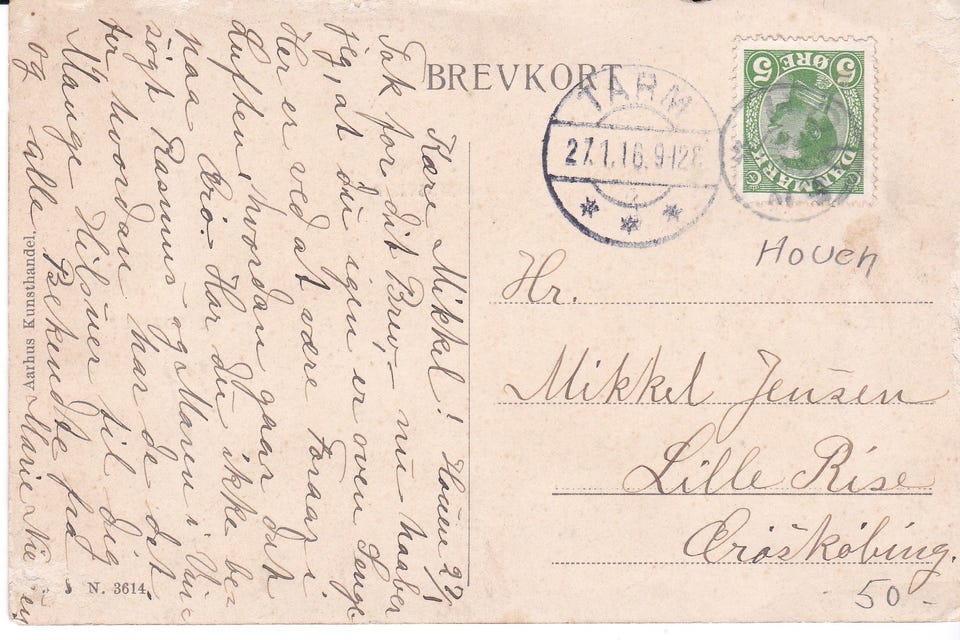 BREVKORT
TARM
27.1.16. 9-12E
5 ØRE 5
DANMARK
Houen
Kære Mikkel! Houen 27/1
Tak for dit Brev, – nu haaber
jeg, at du igen er oven Senge
Her er ved at være Foraar i
Luften, hvordan gaar det
Brø. Har du ikke be-
søgt Rasmus og Maren i
naa
for hvordan har de det
Mange Hilsner til dig
og alle Bekendte fra
Marie
Hr.
Mikkel Jensen
Lille Rise
Ærøskøbing.
50 -
Aarhus Kunsthandel.
N. 3614.